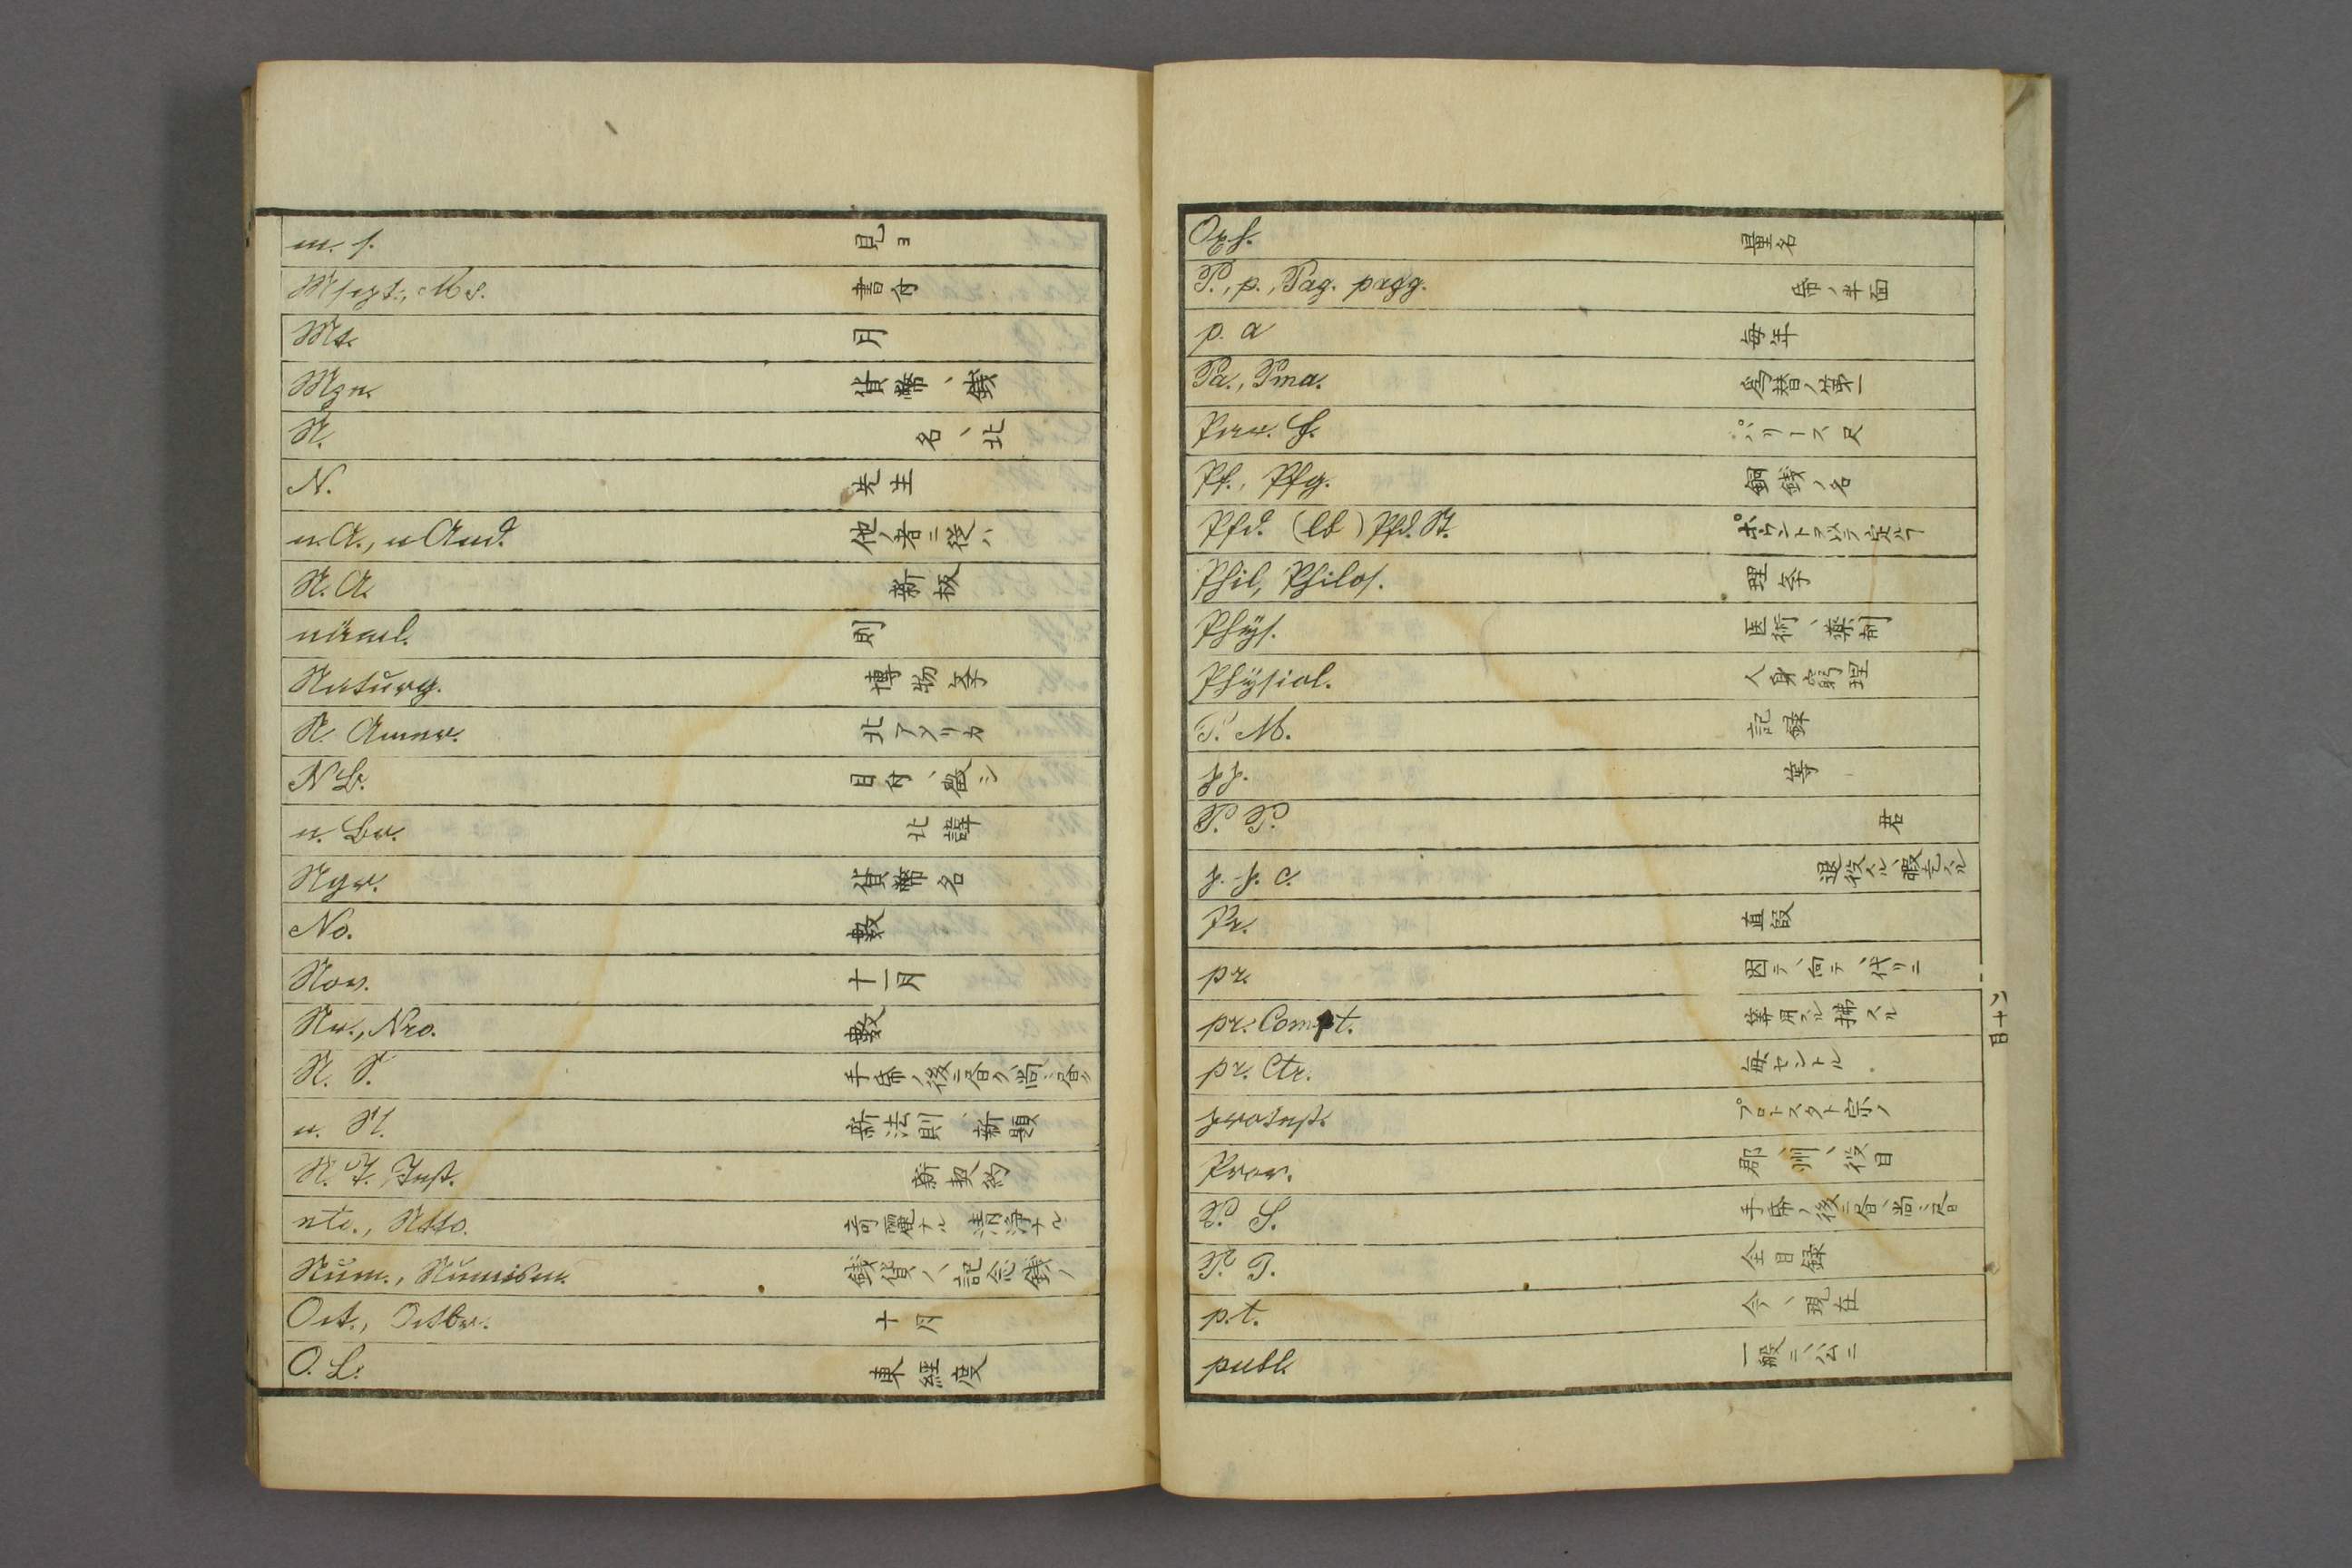 m. s. 見ヨ
Mscpt., Ms. 書付
Mt. 月
Mgn. 貨幣、銭
N. 名、北
N. 先生
n. A., n And. 他ノ者ニ従ハ
N. A. 新板
nüml. 則
Naturg. 博物学
N. Amer. 北アメリカ
NB. 目付、徴シ
n. Br. 北緯
Ngr. 貨幣名
No. 數
Nov. 十一月
Nr., Nro. 數
N. S.
n. St. 新法則、新題
N. T. Test. 新契約
nto., Ntto. 奇麗ナル 清浄ナル
Num., Numism. 銭貨ノ、記念銭ノ
Oct., Octbr. 十月
O. L. 東経度
Oxh. 量名
P., p., Pag. pagg. 帋ノ半面
p. a 毎年
Pa., Pma. 為替ノ第一
Par. F. パリース尺
Pf., Pfg. 銅銭ノ名
Pfd. (lb) Pfd. St.
Phil, Philos. 理学
Phys. 医術、薬剤
Physiol. 人身窮理
P. M. 記録
pp. 等
P. P. 君
p. p. c. 退役スル、暇乞スル
Pr. 直段
pr. 因テ、向テ、代リニ
pr. Compt. 算用スル 拂スル
pr. Ctr. 毎セントル
protest. プロトスタト宗ノ
Prov. 郡、州、役目
P. S.
P. T. 全目録
p. t. 今、現在
publ. 一般ニ、公ニ